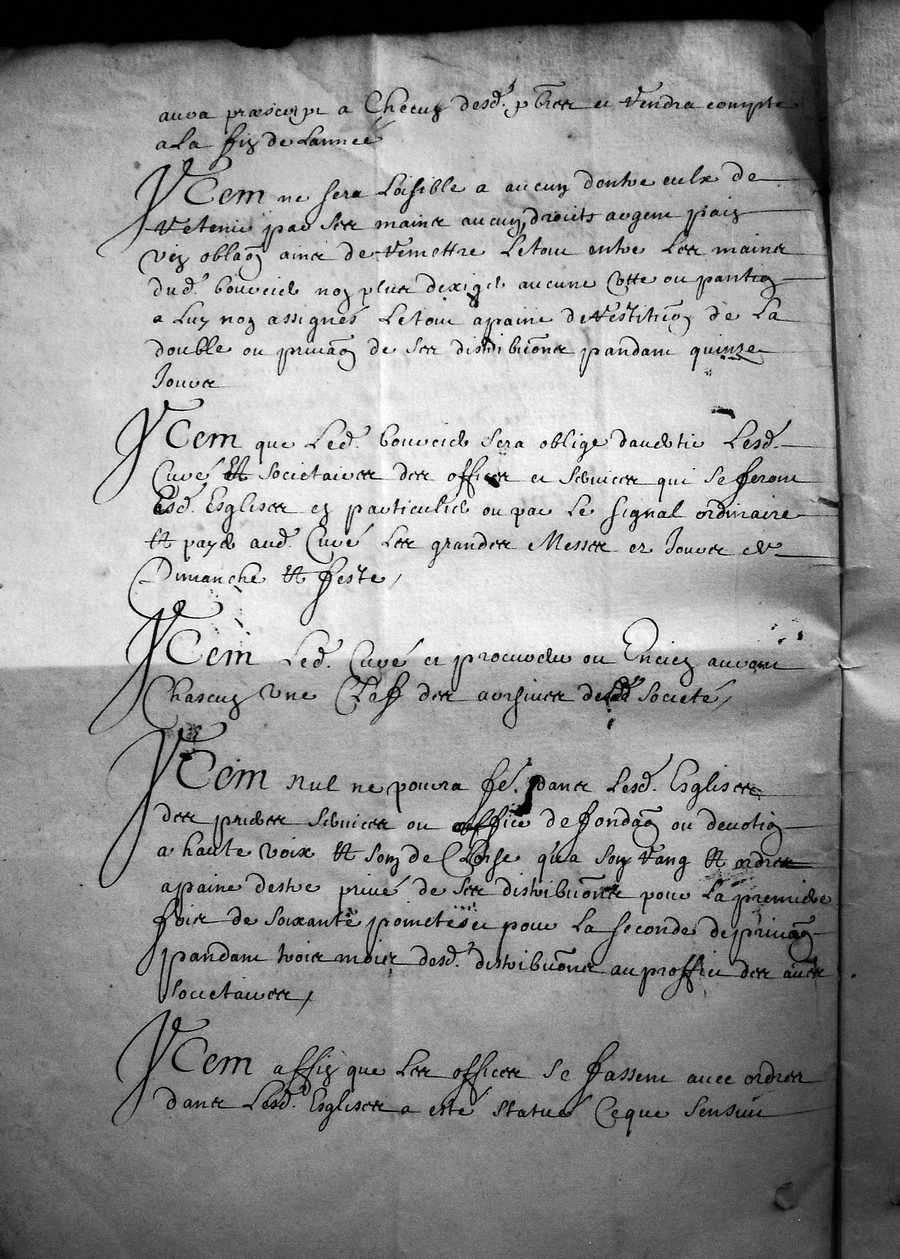 aura præscript a Checun desd. pbres et rendra compte
a La fin de Lannee
Item ne sera Loisible a aucun dentre eulx de
retenir par ses mains aucuns droits argent pain
vin oblaõn ains de remettre Letout entre Les mains
dud. boursier non plus dexiger aucune Cotte ou portion
a Luy non assignés Letout apaine de restituõn de La
double ou privaõn de ses distribuõns pandant quinze
Jours
Item que Led. boursier sera oblige davertir Lesd.
Curé Et Societaires des offices et services qui se feront
Esd. Esglises en particulier ou par Le signal ordinaire
Et payer aud. Curé Les grandes Messes es Jours de
Dimanche Et feste,
Item Led. Curé et procureur ou Encien auront
Chascun une Cleff des archives de lad. Societé,
Item Nul ne pourra fe. dans Lesd. Esglises
des prieres services ou office de fondaõn ou devotion
a haute voix Et son de Cloche qua son rang Et ordre
apaine destre privé de ses distribuõns pour La premiere
fois de soixante pointes et pour La seconde de privaõn
pandant trois mois desd. distribuõns au proffit des autres
Societaires,
Item affin que Les offices se fassent avec ordre
dans Lesd. Esglises a esté statué Ceque sensuit